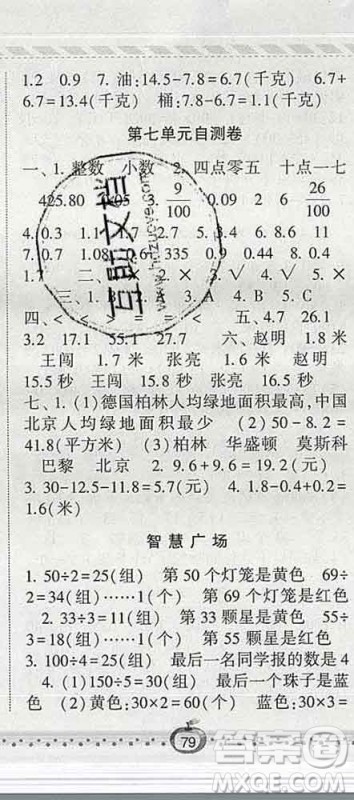 1.2 0.9 7. 油:14.5-7.8=6.7(千克) 6.7+
6.7=13.4(千克) 桶:7.8-6.7=1.1(千克)
第七单元自测卷
一、1. 整数 小数 2. 四点零五 十点一七
425.80 3. 9/100 0.09 2 6 26/100
4. 0.3 1.1 2.7 5. 3.4 6. 8.6
7. 0.7 1.08 6 335 0.9 0.44 0.4
1.7 二、 2. × 3. √ 4. √ 5. ×
三、1. 3. A 4. B
四、< < = = < 五、4.7 26.1
3.2 17.1 55.1 27.7 六、赵明 1.8 米
王闯 1.7 米 张亮 1.6 米 赵明
15.5 秒 王闯 15.9 秒 张亮 16.5 秒
七、1. (1)德国柏林人均绿地面积最高,中国
北京人均绿地面积最少 (2)50-8.2=
41.8(平方米) (3)柏林 华盛顿 莫斯科
巴黎 北京 2. 9.6+9.6=19.2(元)
3. 30-12.5-11.8=5.7(元) 4. 1.8-0.4+0.2=
1.6(米)
智慧广场
1. 50÷2=25(组) 第 50 个灯笼是黄色 69÷
2=34(组)……1(个) 第 69 个灯笼是红色
2. 33÷3=11(组) 第 33 颗星是黄色 55÷
3=18(组)……1(个) 第 55 颗星是红色
3. 100÷4=25(组) 最后一名同学报的数是 4
4. (1)150÷5=30(组) 最后一个珠子是蓝
色 (2)黄色:30×2=60(个) 蓝色:30×3=
79
答案圈
MXQE.COM
互助文档